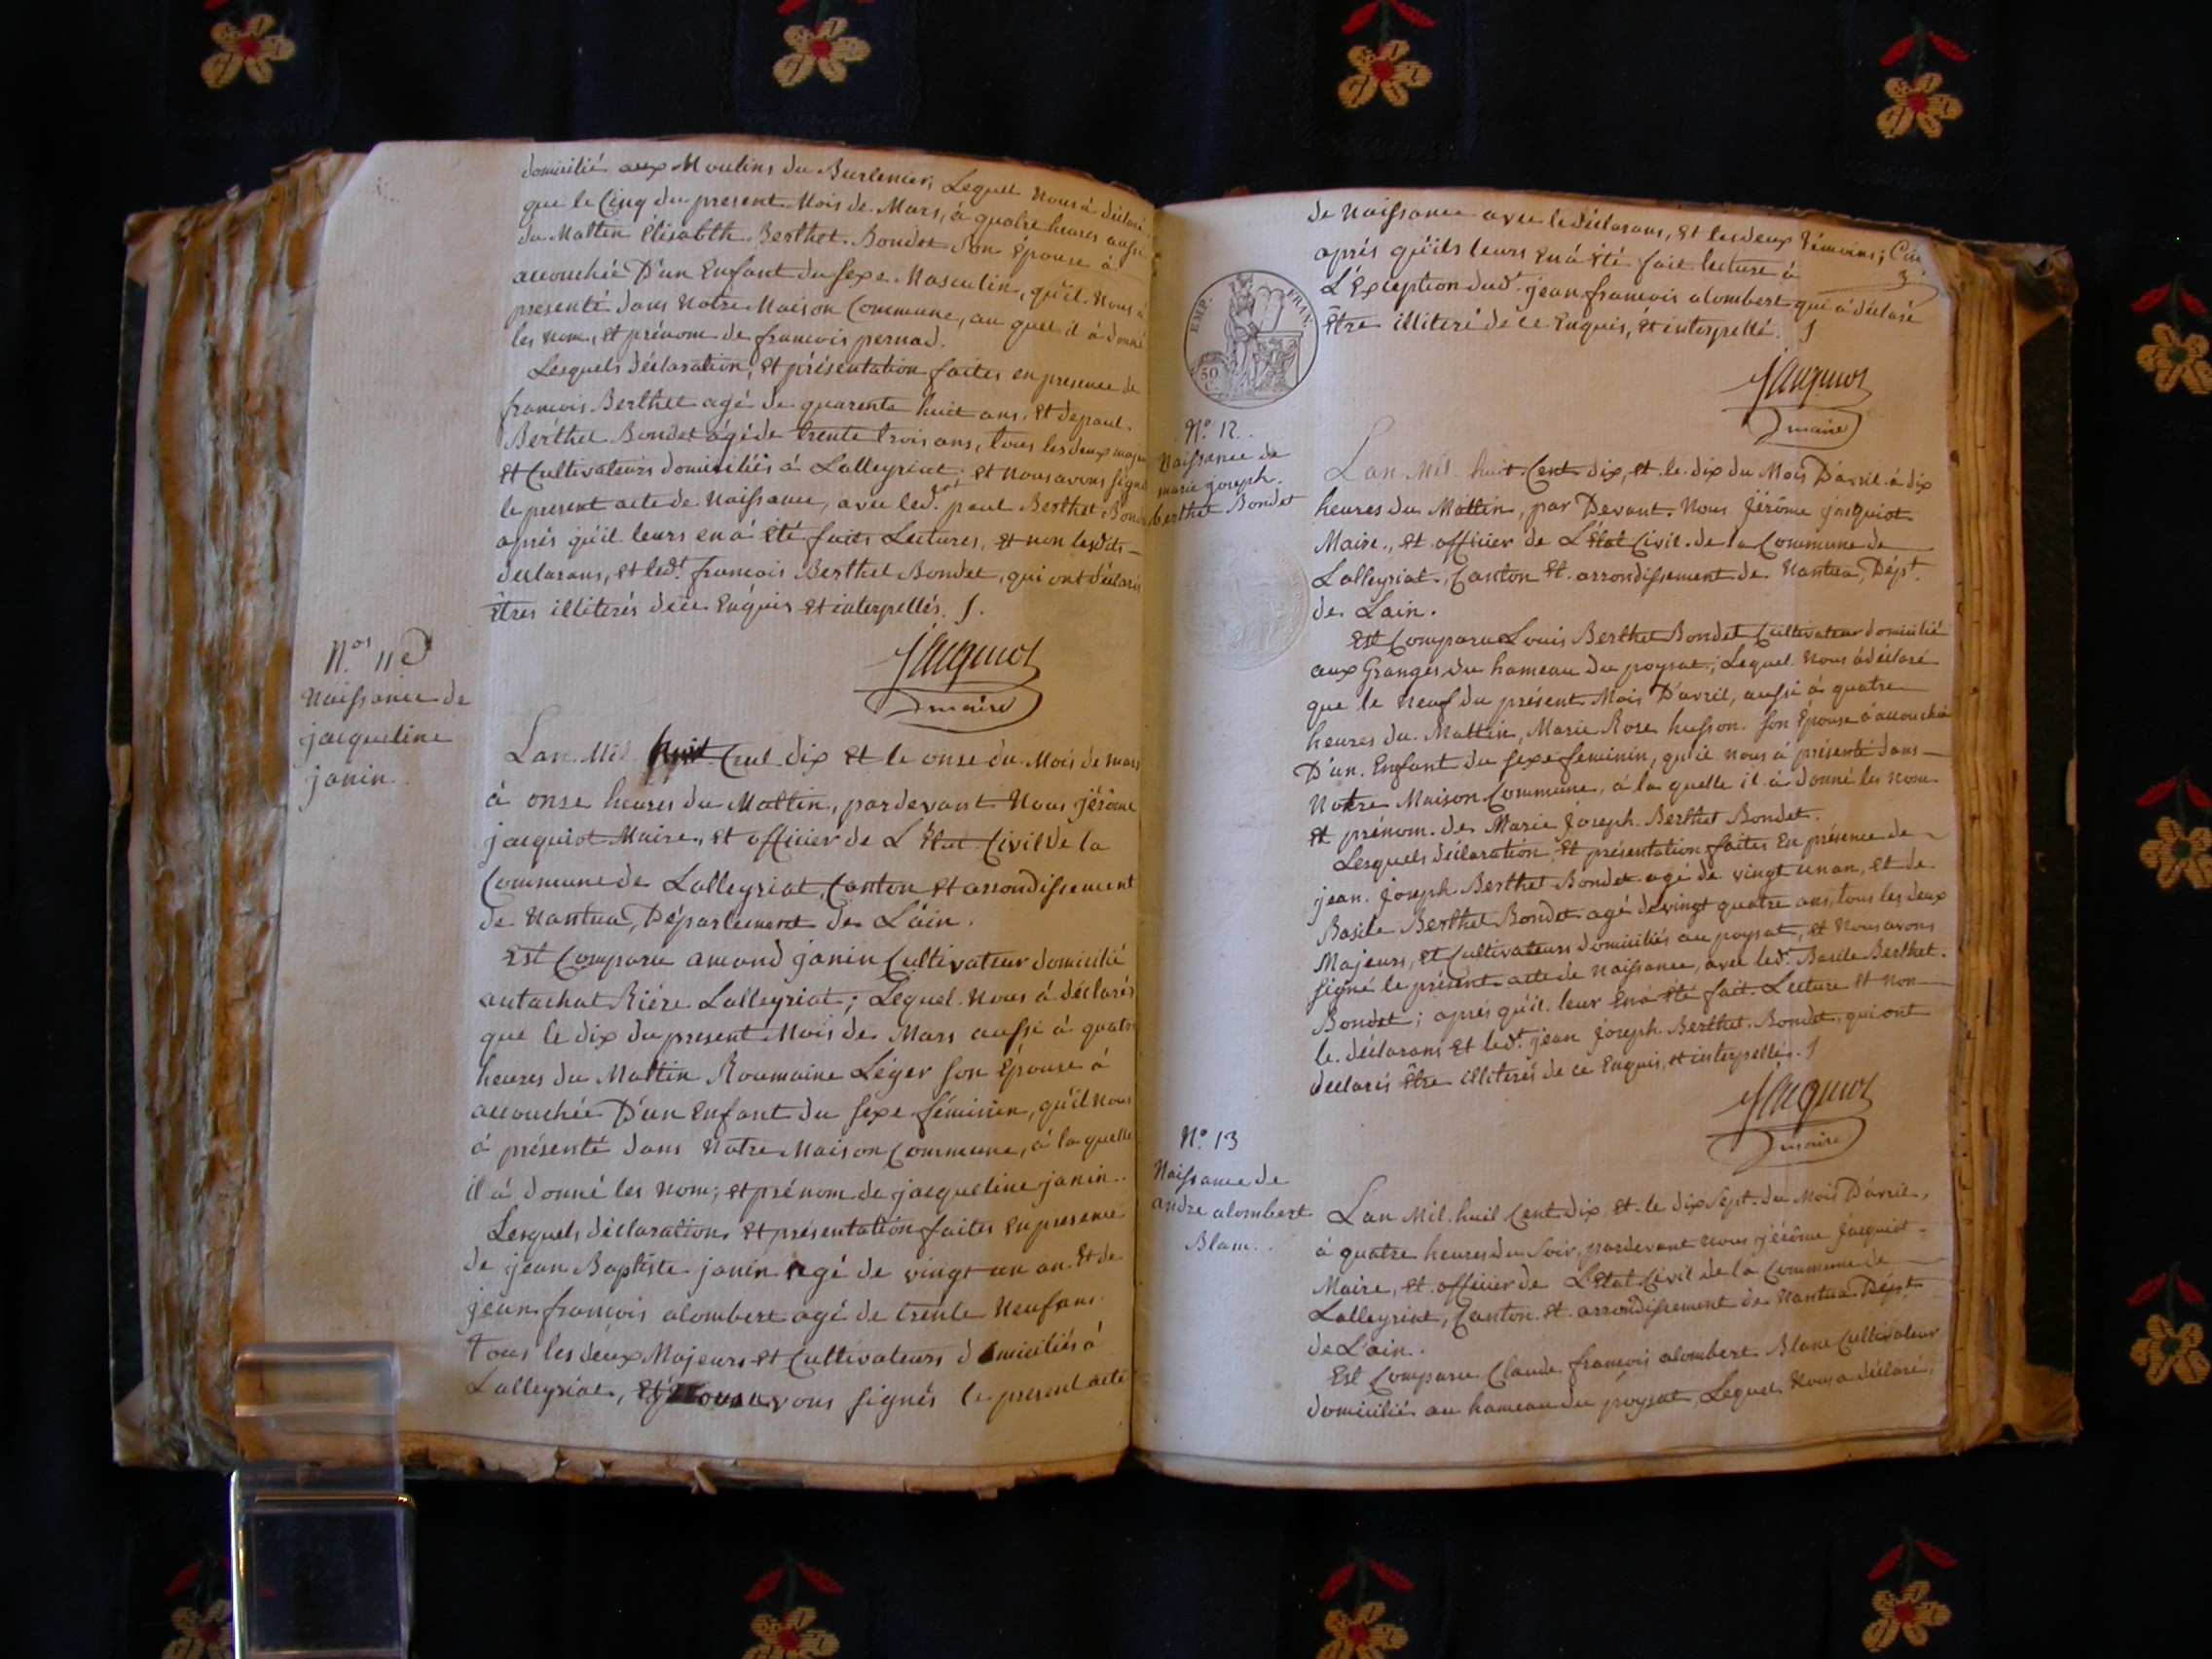 domicilié aux Moulins du Burlenier; Lequel Nous à déclaré
que le Cinq du present Mois de Mars, à quatre heures aussi
du Mattin Élisabeth Berthet Bondet Son Épouse à
accouchée D'un Enfant du sexe Masculin, qu'il Nous à
presenté dans Notre Maison Commune, au quel il à donné
les Nom, et prénom de francois pernod.
Lesquels déclaration, et présentation faites en presence de
francois Berthet agé de quarente huit ans. et de paul
Berthet Bondet agé de trente trois ans, tous les deux majeurs
et Cultivateurs domiciliés à Lalleyriat; et Nous avons signé
le present acte de Naissance, avec led. paul Berthet Bondet
après qu'il leurs en à été faits Lectures, et non lesdits
declarans, et led.t francois Berthet Bondet, qui ont déclarés
Êtres illiterés de ce Enquis et interpellés. /.
Jacquiot
maire
N.os 11e
Naissance de
jacqueline
janin.
Lan Mil huit Cent dix et le onse du Mois de mars
à onse heures du Mattin, pardevant Nous jérôme
jacquiot Maire, et officier de L'État Civil de la
Commune de Lalleyriat, Canton et arrondissement
de Nantua, Département de L'ain.
Est Comparu amand janin Cultivateur domicilié
autachat Riére Lalleyriat; Lequel Nous à déclarés
que le dix du present Mois de Mars aussi à quatre
heures du Mattin Roumaine Léger son Épouse à
accouchée D'un Enfant du sexe féminin, qu'il Nous
à présenté dans Notre Maison Commune, à la quelle
il à donné les Nom; et prénom de jacqueline janin..
Lesquels déclaration, et présentation faites En presence
de jean Baptiste janin agé de vingt un an Et de
jean francois alombert agé de trente Neuf ans
tous les deux Majeurs et Cultivateurs domiciliés à
Lalleyriat, et Nous avons signés le present acte
de Naissance avec le déclarans, et les deux témoins;
après qu'ils leurs en à été fait lecture à
L'Exception dud.t jean francois alombert qui à déclaré
Être illiteré de ce Enquis, et interpellé. /
EMP. FRAN.
50
Jacquiot
maire
N.o 12.
Naissance de
marie joseph.
berthet Bondet
Lan Mil huit Cent dix, et le dix du Mois D'avril à dix
heures du Mattin, par Devant Nous Jérôme jacquiot
Maire, et officier de L'État Civil de la Commune de
Lalleyriat, Canton et arrondissement de Nantua, Dépt.
de Lain.
Est Comparu Louis Berthet Bondet Cultivateur domicilié
aux Granges du hameau du poysat; Lequel Nous à déclaré
que le Neuf du présent Mois D'avril, aussi à quatre
heures du Mattin, Marie Rose husson son Épouse à accouchée
D'un Enfant du sexe feminin, qu'il nous à présenté dans
Notre Maison Commune, à la quelle il à donné les Nom
et prénom de Marie Joseph Berthet Bondet.
Lesquels déclaration, et présentation faites En présence de
jean Joseph Berthet Bondet agé de vingt un an, et de
Basile Berthet Bondet agé de vingt quatre ans, tous les deux
Majeurs, et Cultivateurs domiciliés au poysat, et Nous avons
signé le présent acte de Naissance, avec led.t Basile Berthet
Bondet; après qu'il leur en à été fait Lecture et non
le déclarans et led.t jean Joseph Berthet Bondet, qui ont
declarés Être illiterés de ce Enquis, et interpellés. /
Jacquiot
maire
N.o 13
Naissance de
andre alombert
Blanc.
Lan Mil huit Cent dix, et le dix Sept du Mois D'avril,
à quatre heures du Soir, pardevant nous jérôme Jacquiot
Maire, et officier de L'État Civil de la Commune de
Lalleyriat, Canton et arrondissement de Nantua Dépt
de L'ain.
Est Comparu Claude francois alombert Blanc Cultivateur
domicilié au hameau du poysat, Lequel Nous a déclaré,